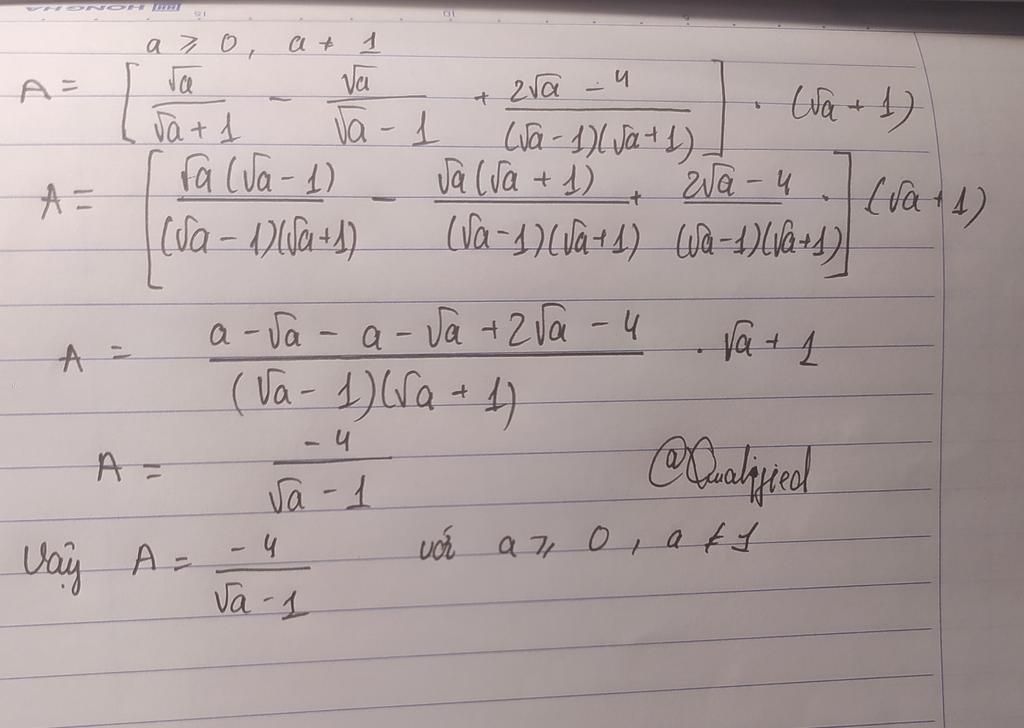 HONGHA
a ≥ 0, a ≠ 1
A = [ √a/(√a + 1) - √a/(√a - 1) + (2√a - 4)/((√a - 1)(√a + 1)) ] . (√a + 1)
A = [ √a(√a - 1)/((√a - 1)(√a + 1)) - √a(√a + 1)/((√a - 1)(√a + 1)) + (2√a - 4)/((√a - 1)(√a + 1)) ] (√a + 1)
A = (a - √a - a - √a + 2√a - 4)/((√a - 1)(√a + 1)) . √a + 1
A = -4/(√a - 1)
@Qualified
Vậy A = -4/(√a - 1) với a ≥ 0, a ≠ 1